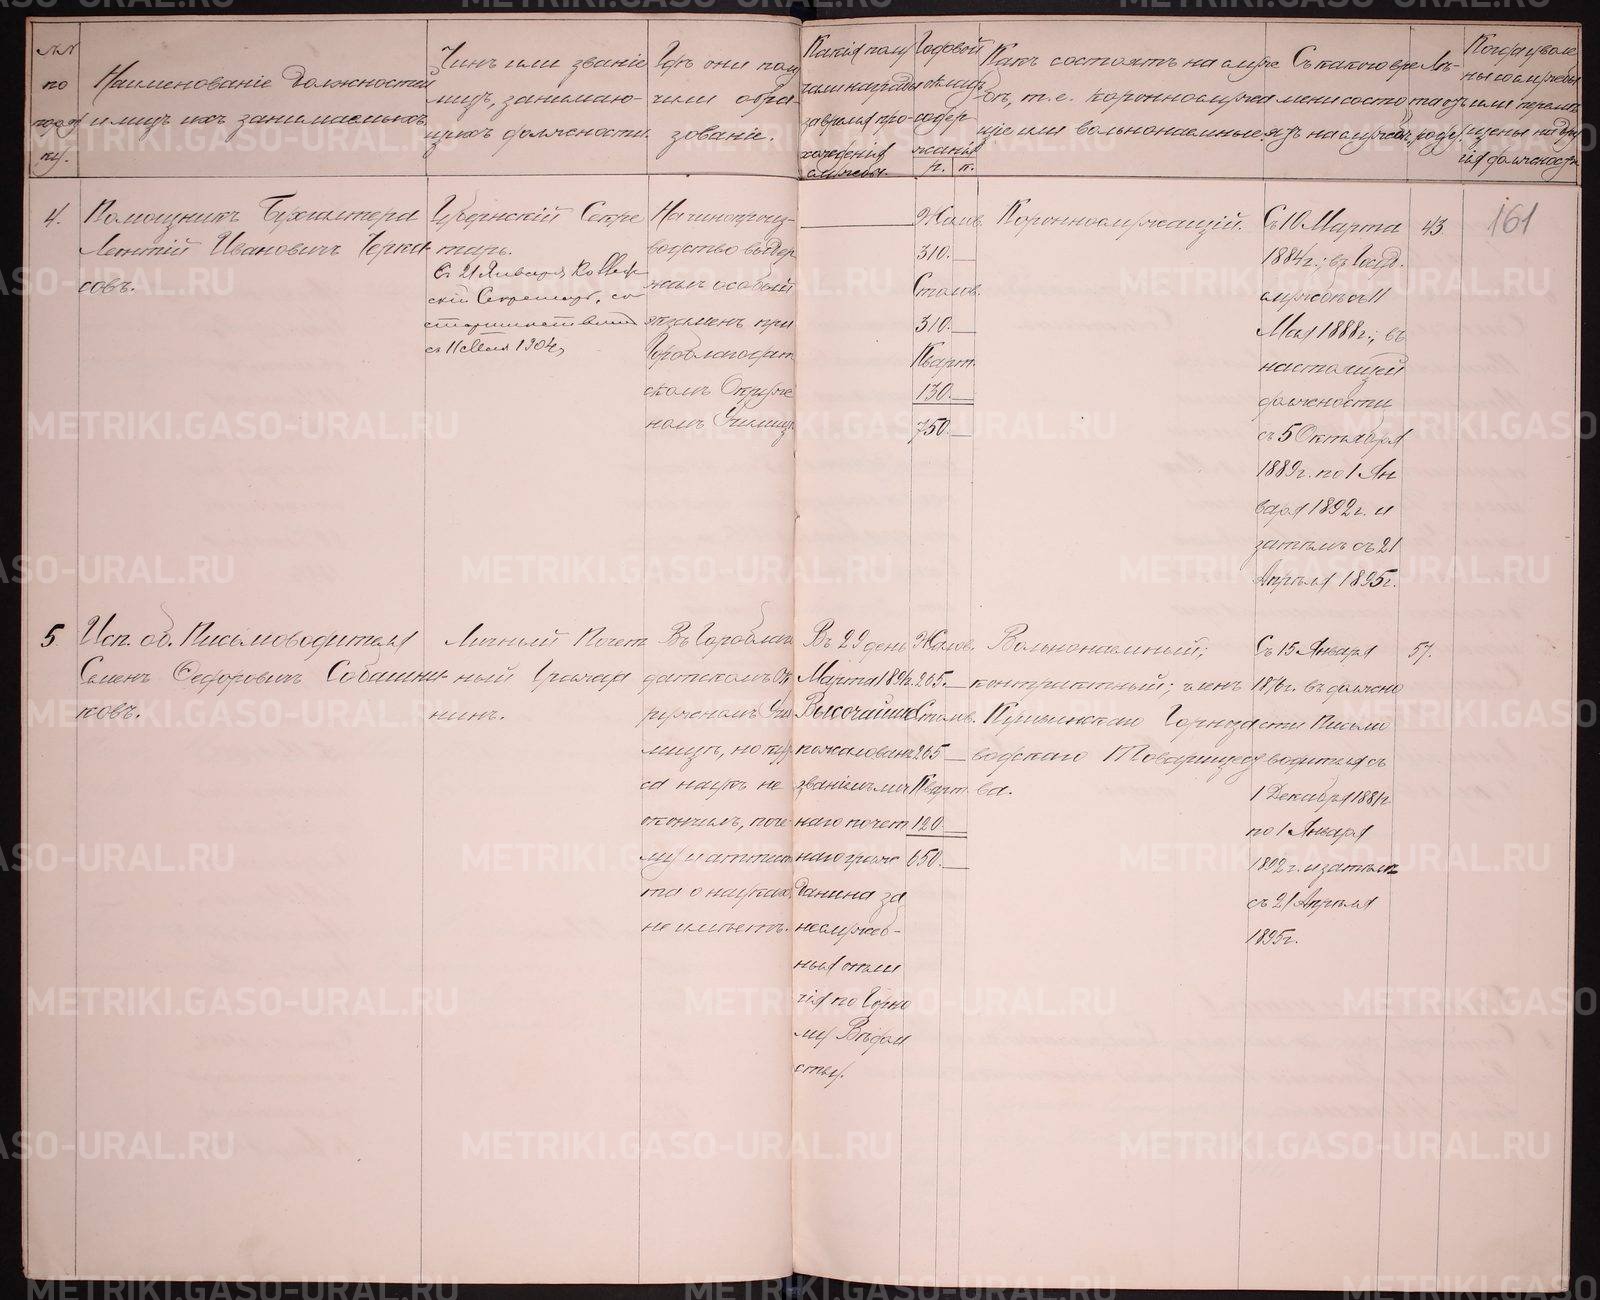 №№
по
поряд
ку.
Наименованіе должностей
и лицъ ихъ занимающихъ.
Чинъ или званіе
лицъ, занимаю-
щихъ должности.
Гдѣ они полу
чили обра-
зованіе.
Какія полу
чали награды
за время про-
хожденія
службы.
Годовой
окладъ
содер
жанія
р. к.
Какъ состоятъ на служ
бѣ, т. е. короннослужа
щіе или вольнонаемные
Съ какого вре
мени состо
ятъ на службѣ
Лѣ-
та отъ
роду.
Когда уволе
ны со службы
или перемѣ
щены на дру
гія должности
161
4.
Помощникъ Бухгалтера
Леонтій Ивановичъ Черка
совъ.
Губернскій Секре
тарь.
Съ 21 Января Коллеж
скій Секретарь, со
старшинствомъ
съ 11 Мая 1904 г.
На чинопроиз-
водство выдер
жалъ особый
экзаменъ при
Гороблагодат
скомъ Окруж
номъ Училищѣ
Жалов.
310.—
Столов.
310.—
Кварт.
130.—
750.—
Короннослужащій.
Съ 10 Марта
1884 г.; въ Госуд.
службѣ съ 11
Мая 1888 г.; въ
настоящей
должности
съ 5 Октября
1889 г. по 1 Ян
варя 1892 г. и
затѣмъ съ 21
Апрѣля 1895 г.
43
5
Исп. об. Письмоводителя
Семенъ Федоровичъ Собашни-
ковъ.
Личный Почет
ный Гражда
нинъ.
Въ Гороблаго
датскомъ Ок
ружномъ Учи
лищѣ, но кур
са наукъ не
окончилъ, поче
му и аттеста
та о наукахъ
не имѣетъ.
Въ 29 день
Марта 1897 г.
Высочайше
пожалованъ
званіемъ лич
наго почет
наго граж
данина за
неслужеб-
ныя отли
чія по Горно
му Вѣдом
ству.
Жалов.
265.—
Столов.
265—
Кварт.
120.
650.—
Вольнонаемный;
контрактный; членъ
Кушвинскаго Горноза
водскаго Товарищест
ва.
Съ 15 Января
1876 г. въ должно
сти Письмо
водителя съ
1 Декабря 1881 г.
по 1 Января
1892 г. и затѣмъ
съ 21 Апрѣля
1895 г.
57.
METRIKI.GASO-URAL.RU